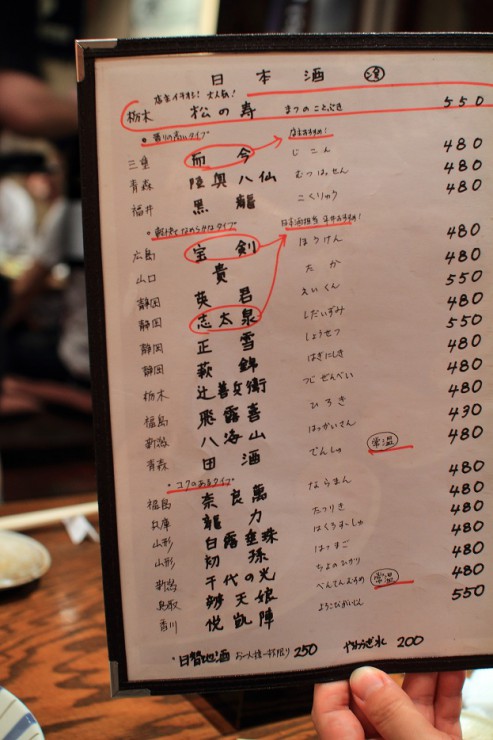 日本酒 冷
店主イチオシ! 大人気!
栃木 松の寿 まつのことぶき 550
・香りの高いタイプ 店主おすすめ!
三重 而今 じこん 480
青森 陸奥八仙 むつはっせん 480
福井 黒龍 こくりゅう 480
・軽快でなめらかなタイプ 日本酒担当
広島 宝剣 ほうけん 480
山口 貴 たか 480
静岡 英君 えいくん 550
静岡 志太泉 しだいずみ 480
静岡 正雪 しょうせつ 550
静岡 萩錦 はぎにしき 480
栃木 辻善兵衛 つじぜんべい 480
福島 飛露喜 ひろき 480
新潟 八海山 はっかいさん 430
青森 田酒 でんしゅ 常温 480
・コクのあるタイプ
福島 奈良萬 ならまん 480
兵庫 龍力 たつりき 480
山形 白露垂珠 はくろすいしゅ 480
山形 初孫 はつまご 480
新潟 千代の光 ちよのひかり 480
鳥取 辨天娘 べんてんむすめ 常温 480
香川 悦凱陣 よろこびがいじん 550
・日替地酒 お一人様一杯限り 250 やわらぎ水 200